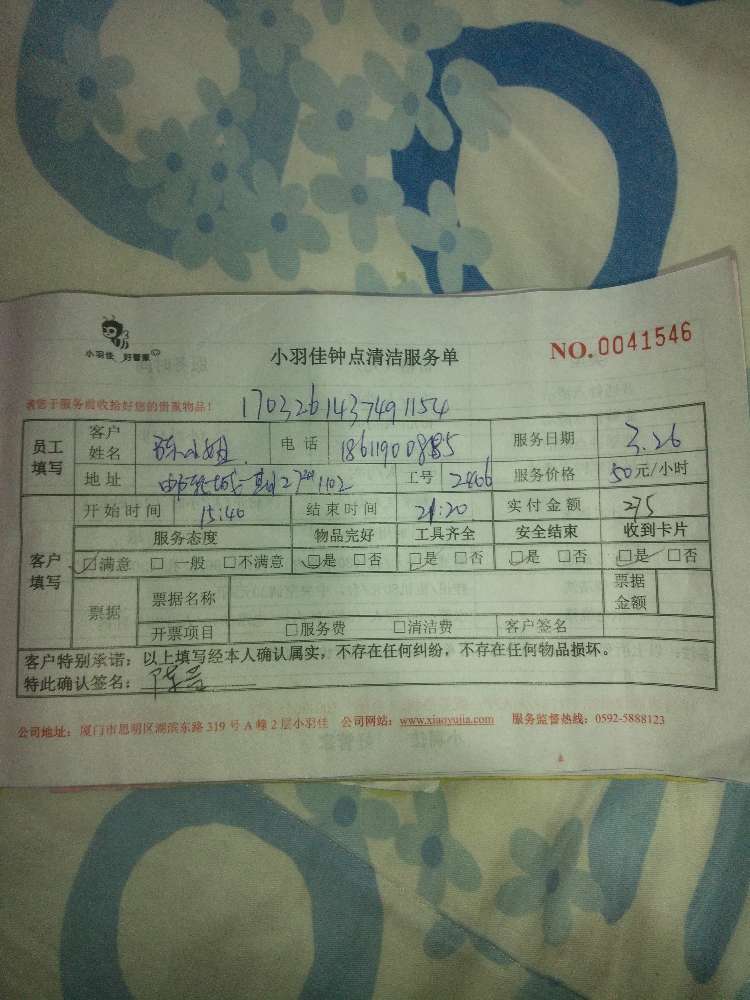 小羽佳 好管家
小羽佳钟点清洁服务单
NO.0041546
请您于服务前收拾好您的贵重物品!
1703261437491154
员工填写
客户姓名 陈小姐 电话 服务日期 3.26
地址 工号 2466 服务价格 50元/小时
开始时间 15:40 结束时间 21:20 实付金额 275
客户填写
服务态度 物品完好 工具齐全 安全结束 收到卡片
☑满意 □一般 □不满意 ☑是 □否 ☑是 □否 ☑是 □否 ☑是 □否
票据 票据名称 票据金额
开票项目 □服务费 □清洁费 客户签名
客户特别承诺：以上填写经本人确认属实，不存在任何纠纷，不存在任何物品损坏。
特此确认签名：
公司地址：厦门市思明区湖滨东路 319 号 A 幢 2 层小羽佳 公司网站：www.xiaoyujia.com 服务监督热线：0592-5888123